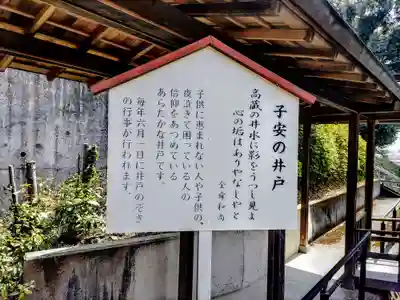 子安の井戸
高蔵の井水に影をうつし見よ
心の垢はありやなしやと
子供に恵まれない人や子供の、
夜泣きで困っている人の
信仰をあつめている
あらたかな井戸です。
毎年六月一日に井戸のぞき
の行事が行われます。